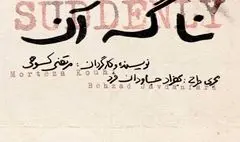 SUDDENLY
ناگهان
نویسنده و کارگردان: مرتضی کوهی
Morteza Kouhi
مجری طرح: بهزاد جاودان فرد
Behzad Javdanfard